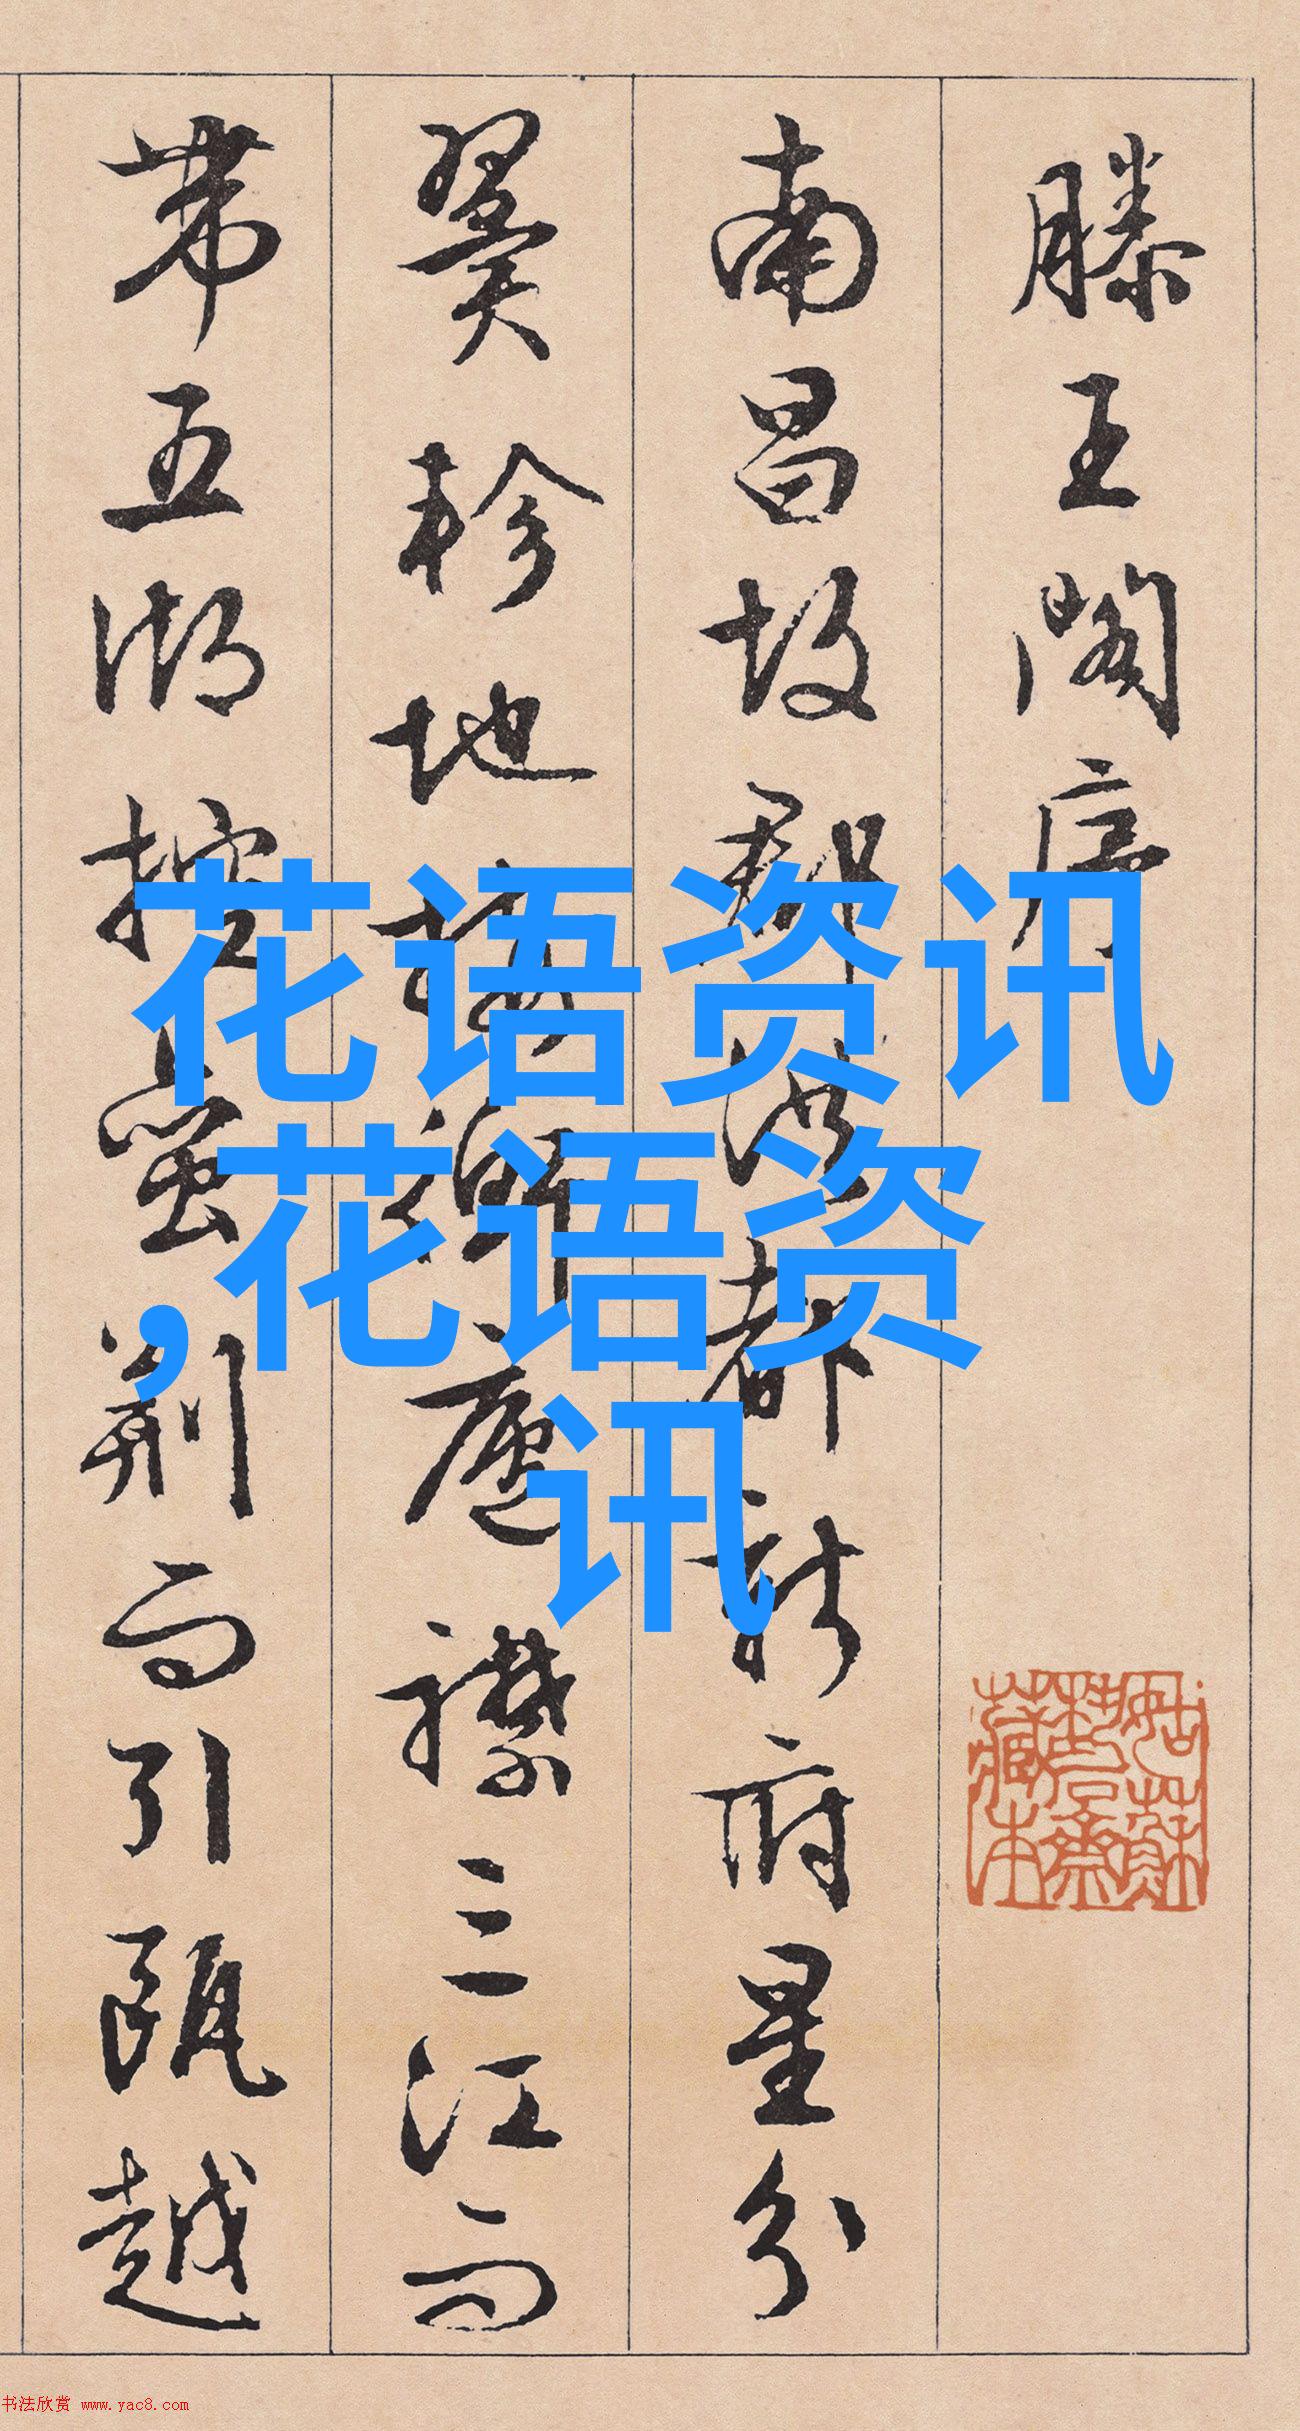 滕王閣序
南昌故郡洪都新府星分
翼軫地接衡廬襟三江而
帶五湖控蠻荊而引甌越
花语资讯
,花语资
讯
书法欣赏 www.yac8.com